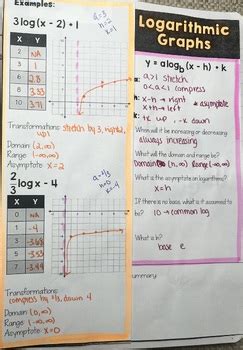 Examples:
3log(x - 2) + 1
a=3
h=2
k=1
X Y
2 NA
3 1
6 2.8
8 3.33
10 3.71
Transformations: stretch by 3, right 2, up 1
Domain: (2, ∞)
Range: (-∞, ∞)
Asymptote: x=2
2/3 log x - 4
a=2/3
h=0
k=-4
X Y
0 NA
1 -4
3
5
7 -3.44
Transformations:
compress by 2/3, down 4
Domain: (0, ∞)
Range: (-∞, ∞)
Asymptote: x=0
Logarithmic
Graphs
y = alog_b(x - h) + k
a: a>1 stretch
0<a<1 compress
h: x-h → right
x+h → left
* asymptote
k: +k up, -k down
When will it be increasing or decreasing
always increasing
What will the domain and range be?
Domain: (h, ∞) Range (-∞, ∞)
What is the asymptote on logarithms?
x=h
If there is no base, what is it assumed to be?
10 → common log
What is ln?
base e
summary: